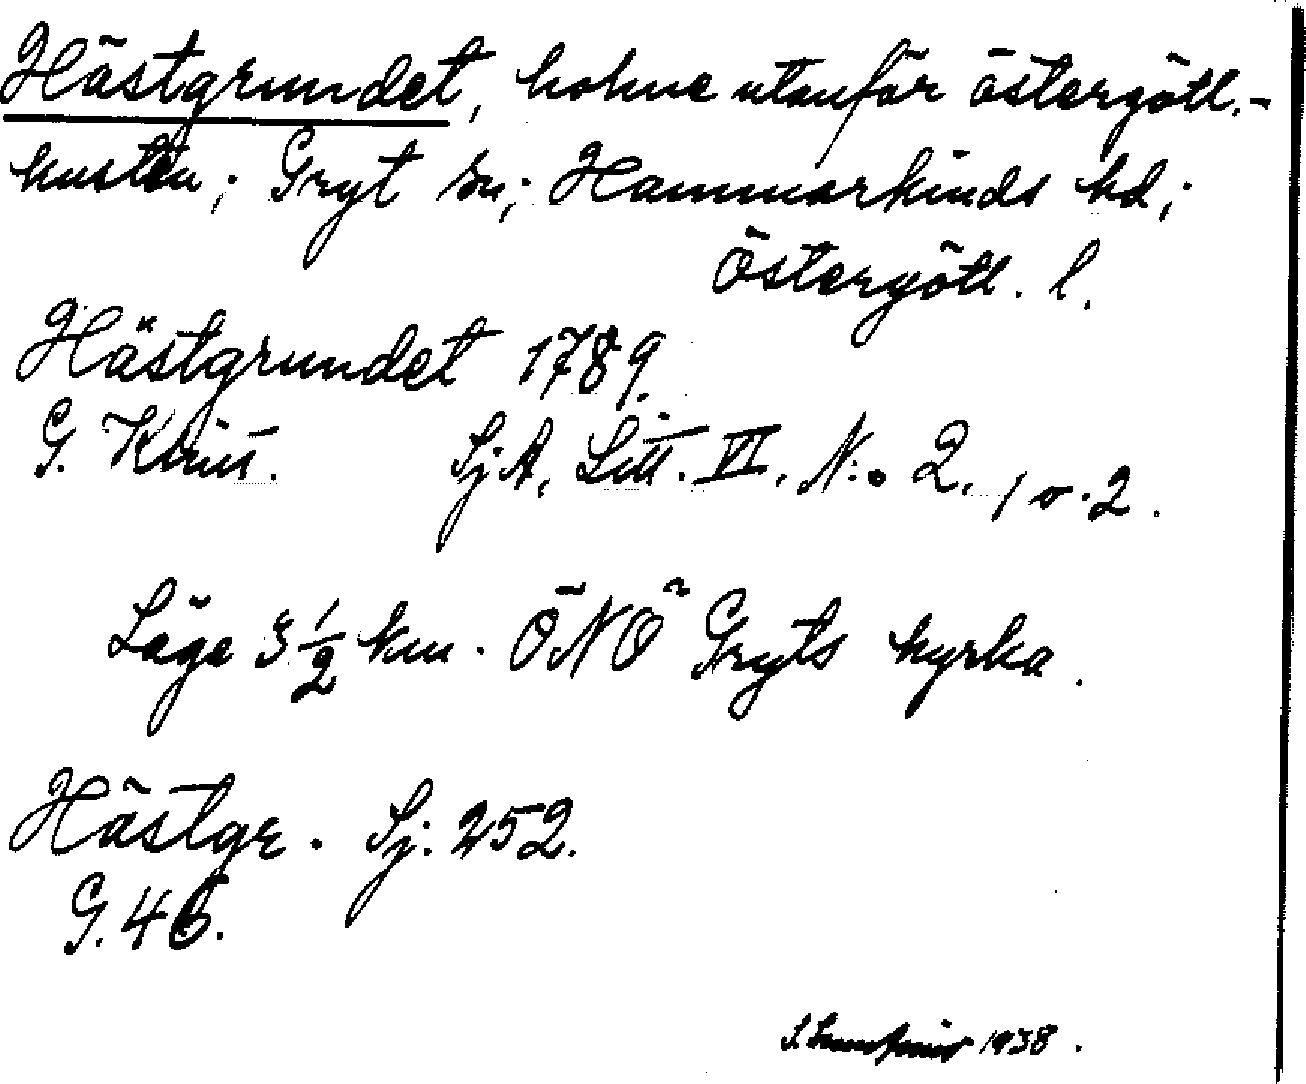 Hästgrundet, holme utanför östergötl.-
kusten; Gryt sn; Hammarkinds hd;
Östergötl. l.
Hästgrundet 1789.
G. Klint. SjA, Litt. VI, N:o 2, 1 o. 2.
Läge 3 1/2 km. ÖNÖ Gryts kyrka.
Hästgr. Sj. 252.
G. 46.
1938.